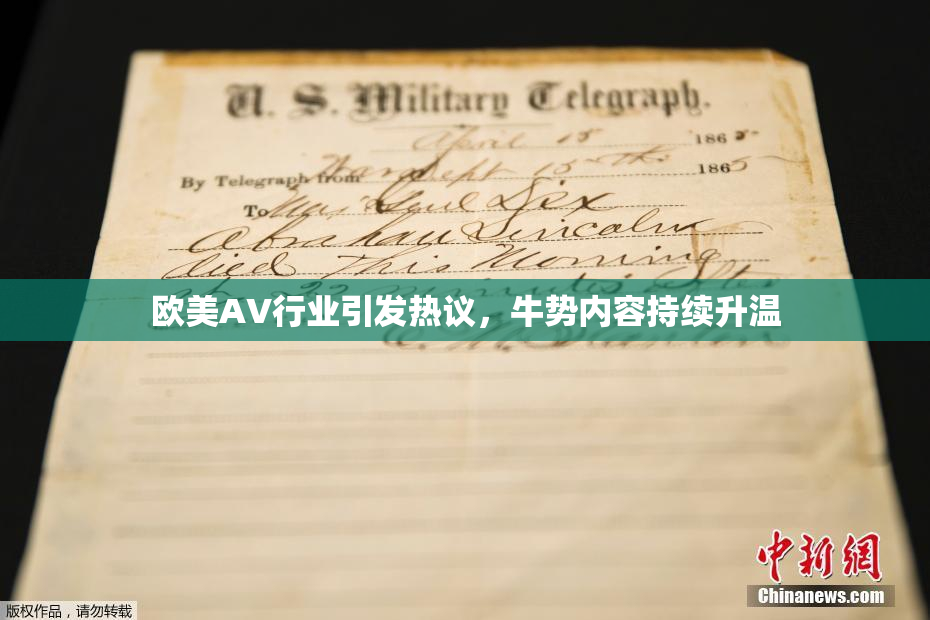 U. S. Military Telegraph.
April 15 1865
By Telegraph from War Dept 15th 1865
To Maj Genl Dix
Abraham Lincoln
died This Morning
at 22 minutes after
欧美AV行业引发热议，牛势内容持续升温
E. M. Stanton
中新网
Chinanews.com
版权作品，请勿转载